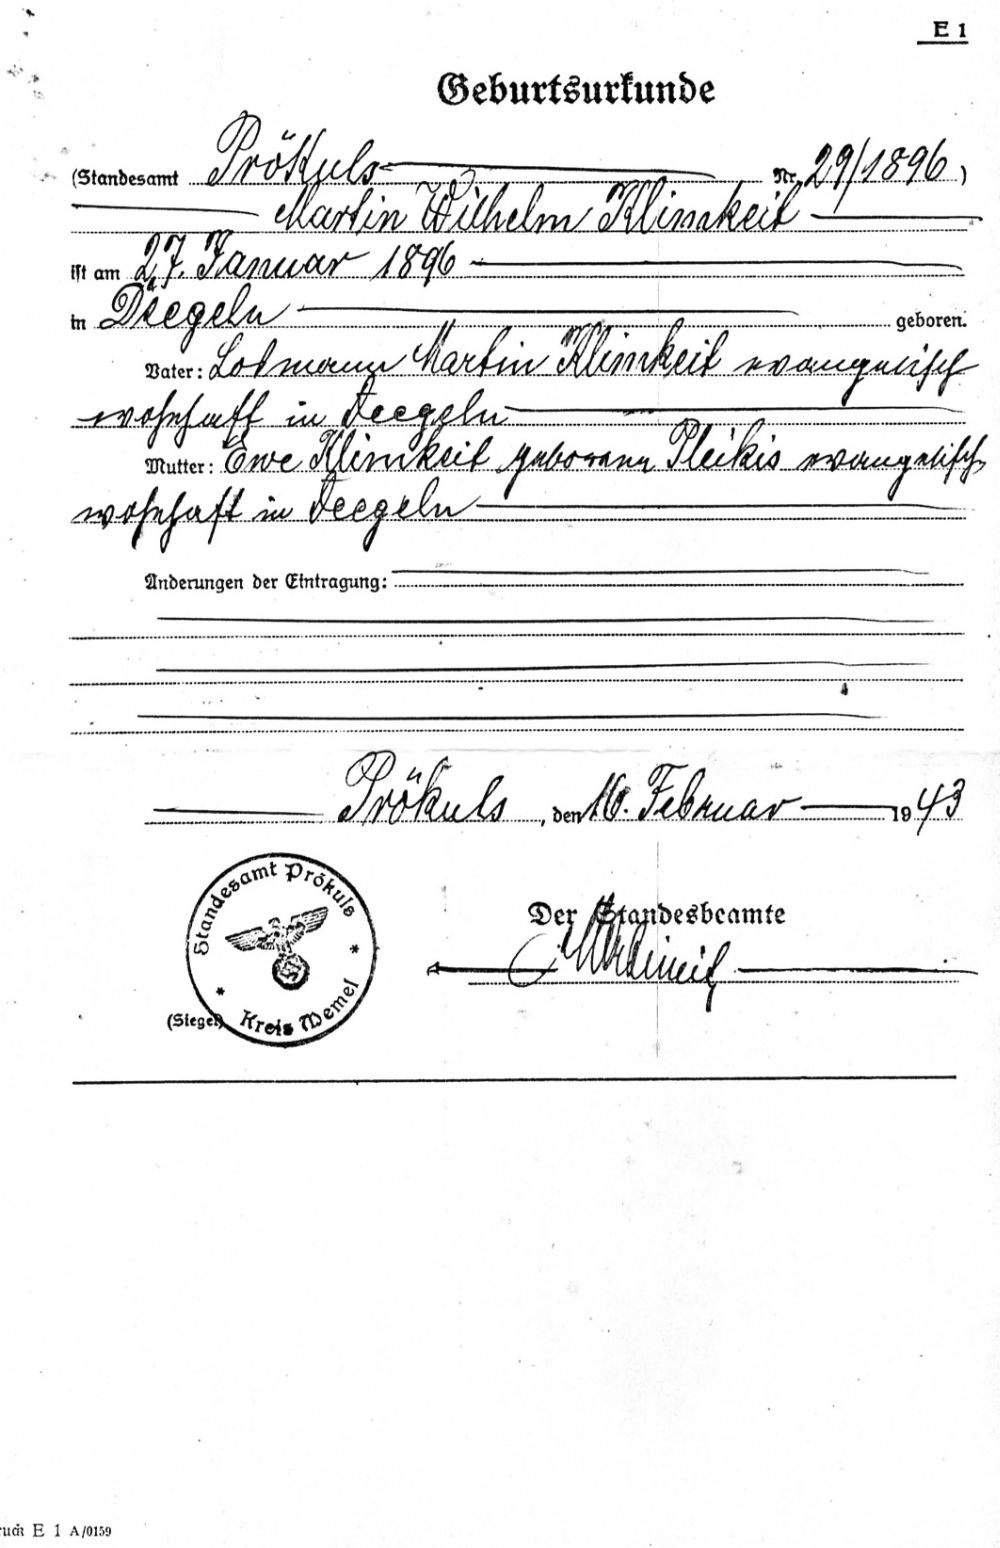 E 1
Geburtsurkunde
(Standesamt Prökuls Nr. 29/1896)
Martin Wilhelm Klimkeit
ist am 27. Januar 1896
in Deegeln geboren.
Vater: Losmann Martin Klimkeit evangelisch
wohnhaft in Deegeln
Mutter: Ewe Klimkeit geborene Pleikis evangelisch
wohnhaft in Deegeln
Änderungen der Eintragung:
Prökuls, den 16. Februar 1943
Standesamt Prökuls
* Kreis Memel *
Der Standesbeamte
(Siegel)
ruck E 1 A/0159